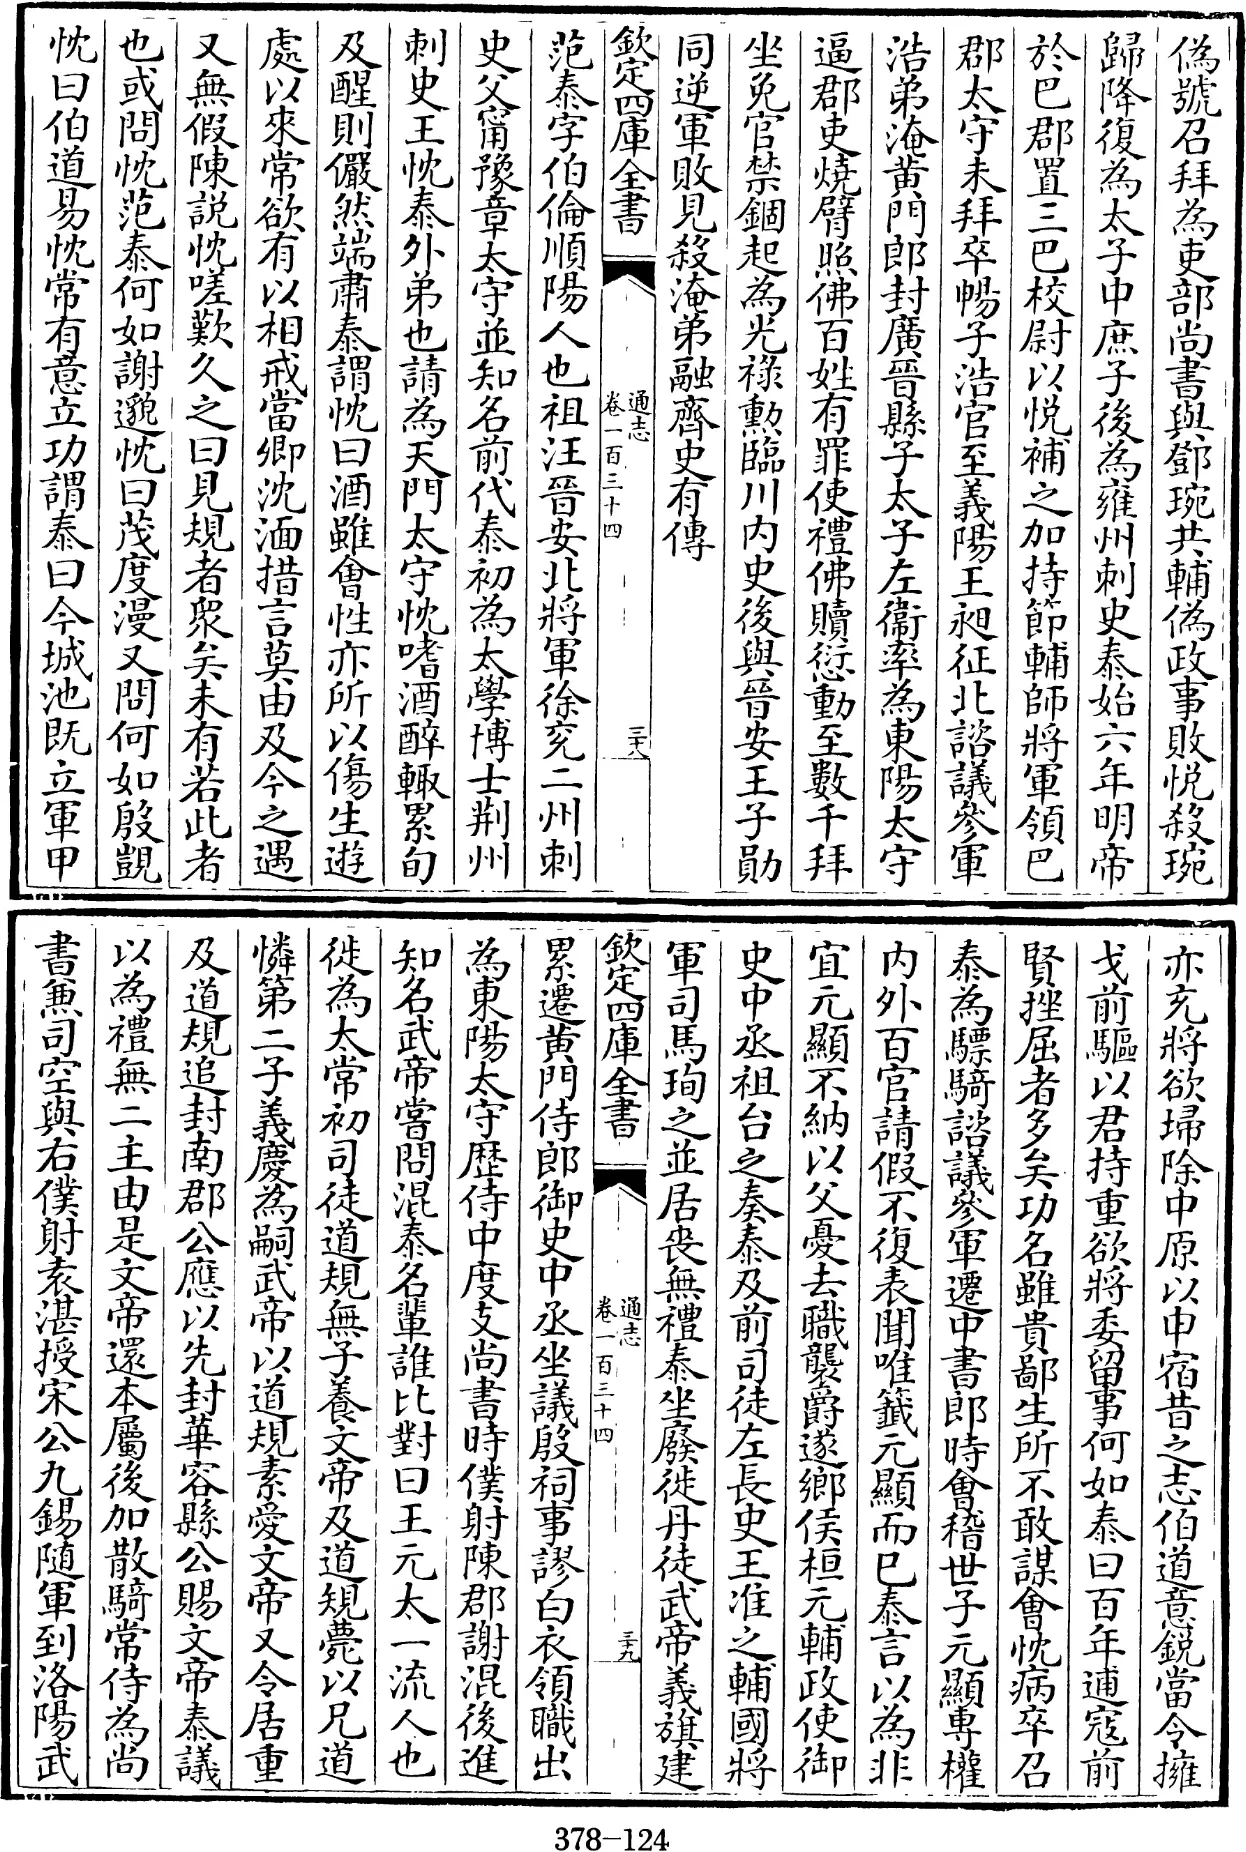 偽號召拜為吏部尚書與鄧琬共輔偽政事敗悦殺琬
歸降復為太子中庶子後為雍州刺史泰始六年明帝
於巴郡置三巴校尉以悦補之加持節輔師將軍領巴
郡太守未拜卒暢子浩官至義陽王昶征北諮議參軍
浩弟淹黄門郎封廣晉縣子太子左衞率為東陽太守
逼郡吏燒臂照佛百姓有罪使禮佛贖愆動至數千拜
坐免官禁錮起為光祿勳臨川内史後與晉安王子勛
同逆軍敗見殺淹弟融齊史有傳
欽定四庫全書
通志
卷一百三十四
三十八
范泰字伯倫順陽人也祖汪晉安北將軍徐兖二州刺
史父甯豫章太守並知名前代泰初為太學博士荆州
刺史王忱泰外弟也請為天門太守忱嗜酒醉輙累旬
及醒則儼然端肅泰謂忱曰酒雖會性亦所以傷生遊
處以來常欲有以相戒當卿沈湎措言莫由及今之遇
又無假陳説忱嗟歎久之曰見規者衆矣未有若此者
也或問忱范泰何如謝邈忱曰茂度漫又問何如殷覬
忱曰伯道易忱常有意立功謂泰曰今城池既立軍甲
亦充將欲埽除中原以申宿昔之志伯道意鋭當令擁
戈前驅以君持重欲將委留事何如泰曰百年逋寇前
賢挫屈者多矣功名雖貴鄙生所不敢謀會忱病卒召
泰為驃騎諮議參軍遷中書郎時會稽世子元顯專權
内外百官請假不復表聞唯籤元顯而已泰言以為非
宜元顯不納以父憂去職襲爵遂鄉侯桓元輔政使御
史中丞祖台之奏泰及前司徒左長史王准之輔國將
軍司馬珣之並居喪無禮泰坐廢徙丹徒武帝義旗建
欽定四庫全書
通志
卷一百三十四
三十九
累遷黄門侍郎御史中丞坐議殷祠事謬白衣領職出
為東陽太守歴侍中度支尚書時僕射陳郡謝混後進
知名武帝嘗問混泰名輩誰比對曰王元太一流人也
徙為太常初司徒道規無子養文帝及道規薨以兄道
憐第二子義慶為嗣武帝以道規素愛文帝又令居重
及道規追封南郡公應以先封華容縣公賜文帝泰議
以為禮無二主由是文帝還本屬後加散騎常侍為尚
書兼司空與右僕射袁湛授宋公九錫隨軍到洛陽武
378-124